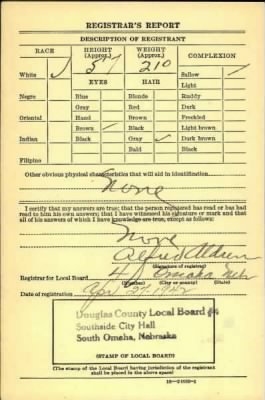 REGISTRAR'S REPORT
DESCRIPTION OF REGISTRANT
RACE HEIGHT (Approx.) WEIGHT (Approx.) COMPLEXION
White ✓ 5' 7 210 Sallow ✓
EYES HAIR Light
Negro Blue Blonde Ruddy
Gray Red Dark
Oriental Hazel Brown Freckled
Brown ✓ Black Light brown
Indian Black Gray ✓ Dark brown
Bald Black
Filipino
Other obvious physical characteristics that will aid in identification
None
I certify that my answers are true; that the person registered has read or has had
read to him his own answers; that I have witnessed his signature or mark and that
all of his answers of which I have knowledge are true, except as follows:
None
Alfred
(Signature of registrar)
Registrar for Local Board 4 Omaha Neb
(Number) (City or county) (State)
Date of registration Apr 27 1942
Douglas County Local Board #4
Southside City Hall
South Omaha, Nebraska
(STAMP OF LOCAL BOARD)
(The stamp of the Local Board having jurisdiction of the registrant
shall be placed in the above space)